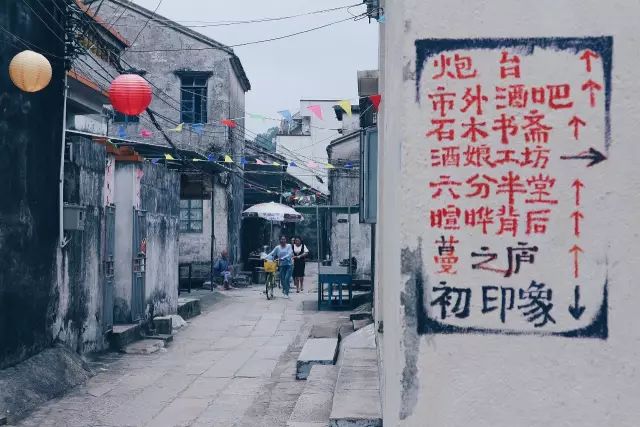 炮台↑
市外酒吧↑
石木书斋↑
酒娘工坊→
六分半堂↑
喧晔背后↑
蔓之庐↑
初印象↓